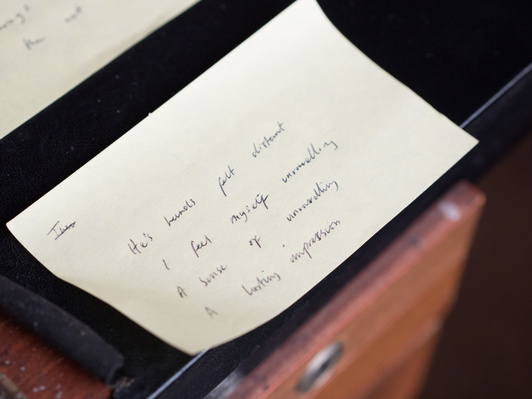 the not
He's hands felt distant
I feel myself unravelling
A sense of unravelling
A lasting impression